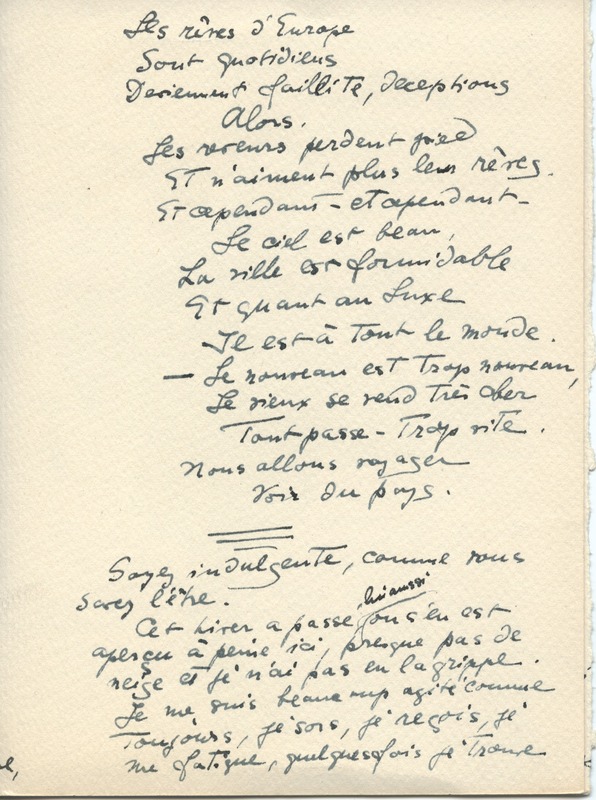 Les rêves d'Europe
Sont quotidiens
Deviennent faillite, deceptions
Alors.
Les reveurs perdent pied
Et n'aiment plus leurs rêves.
Et cependant - et cependant -
Le ciel est beau,
La ville est formidable
Et quant au Luxe
Il est à tout le monde.
— Le nouveau est trop nouveau,
Le vieux se vend très cher
Tout passe - Trop vite.
Nous allons voyager
Voir du pays.
Soyez indulgente, comme vous
savez l'être.
Cet hiver a passé, lui aussi on s'en est
aperçu à peine ici, presque pas de
neige et je n'ai pas eu la grippe.
Je me suis beaucoup agité comme
Toujours, je sors, je reçois, je
me fatigue, quelquesfois je trouve